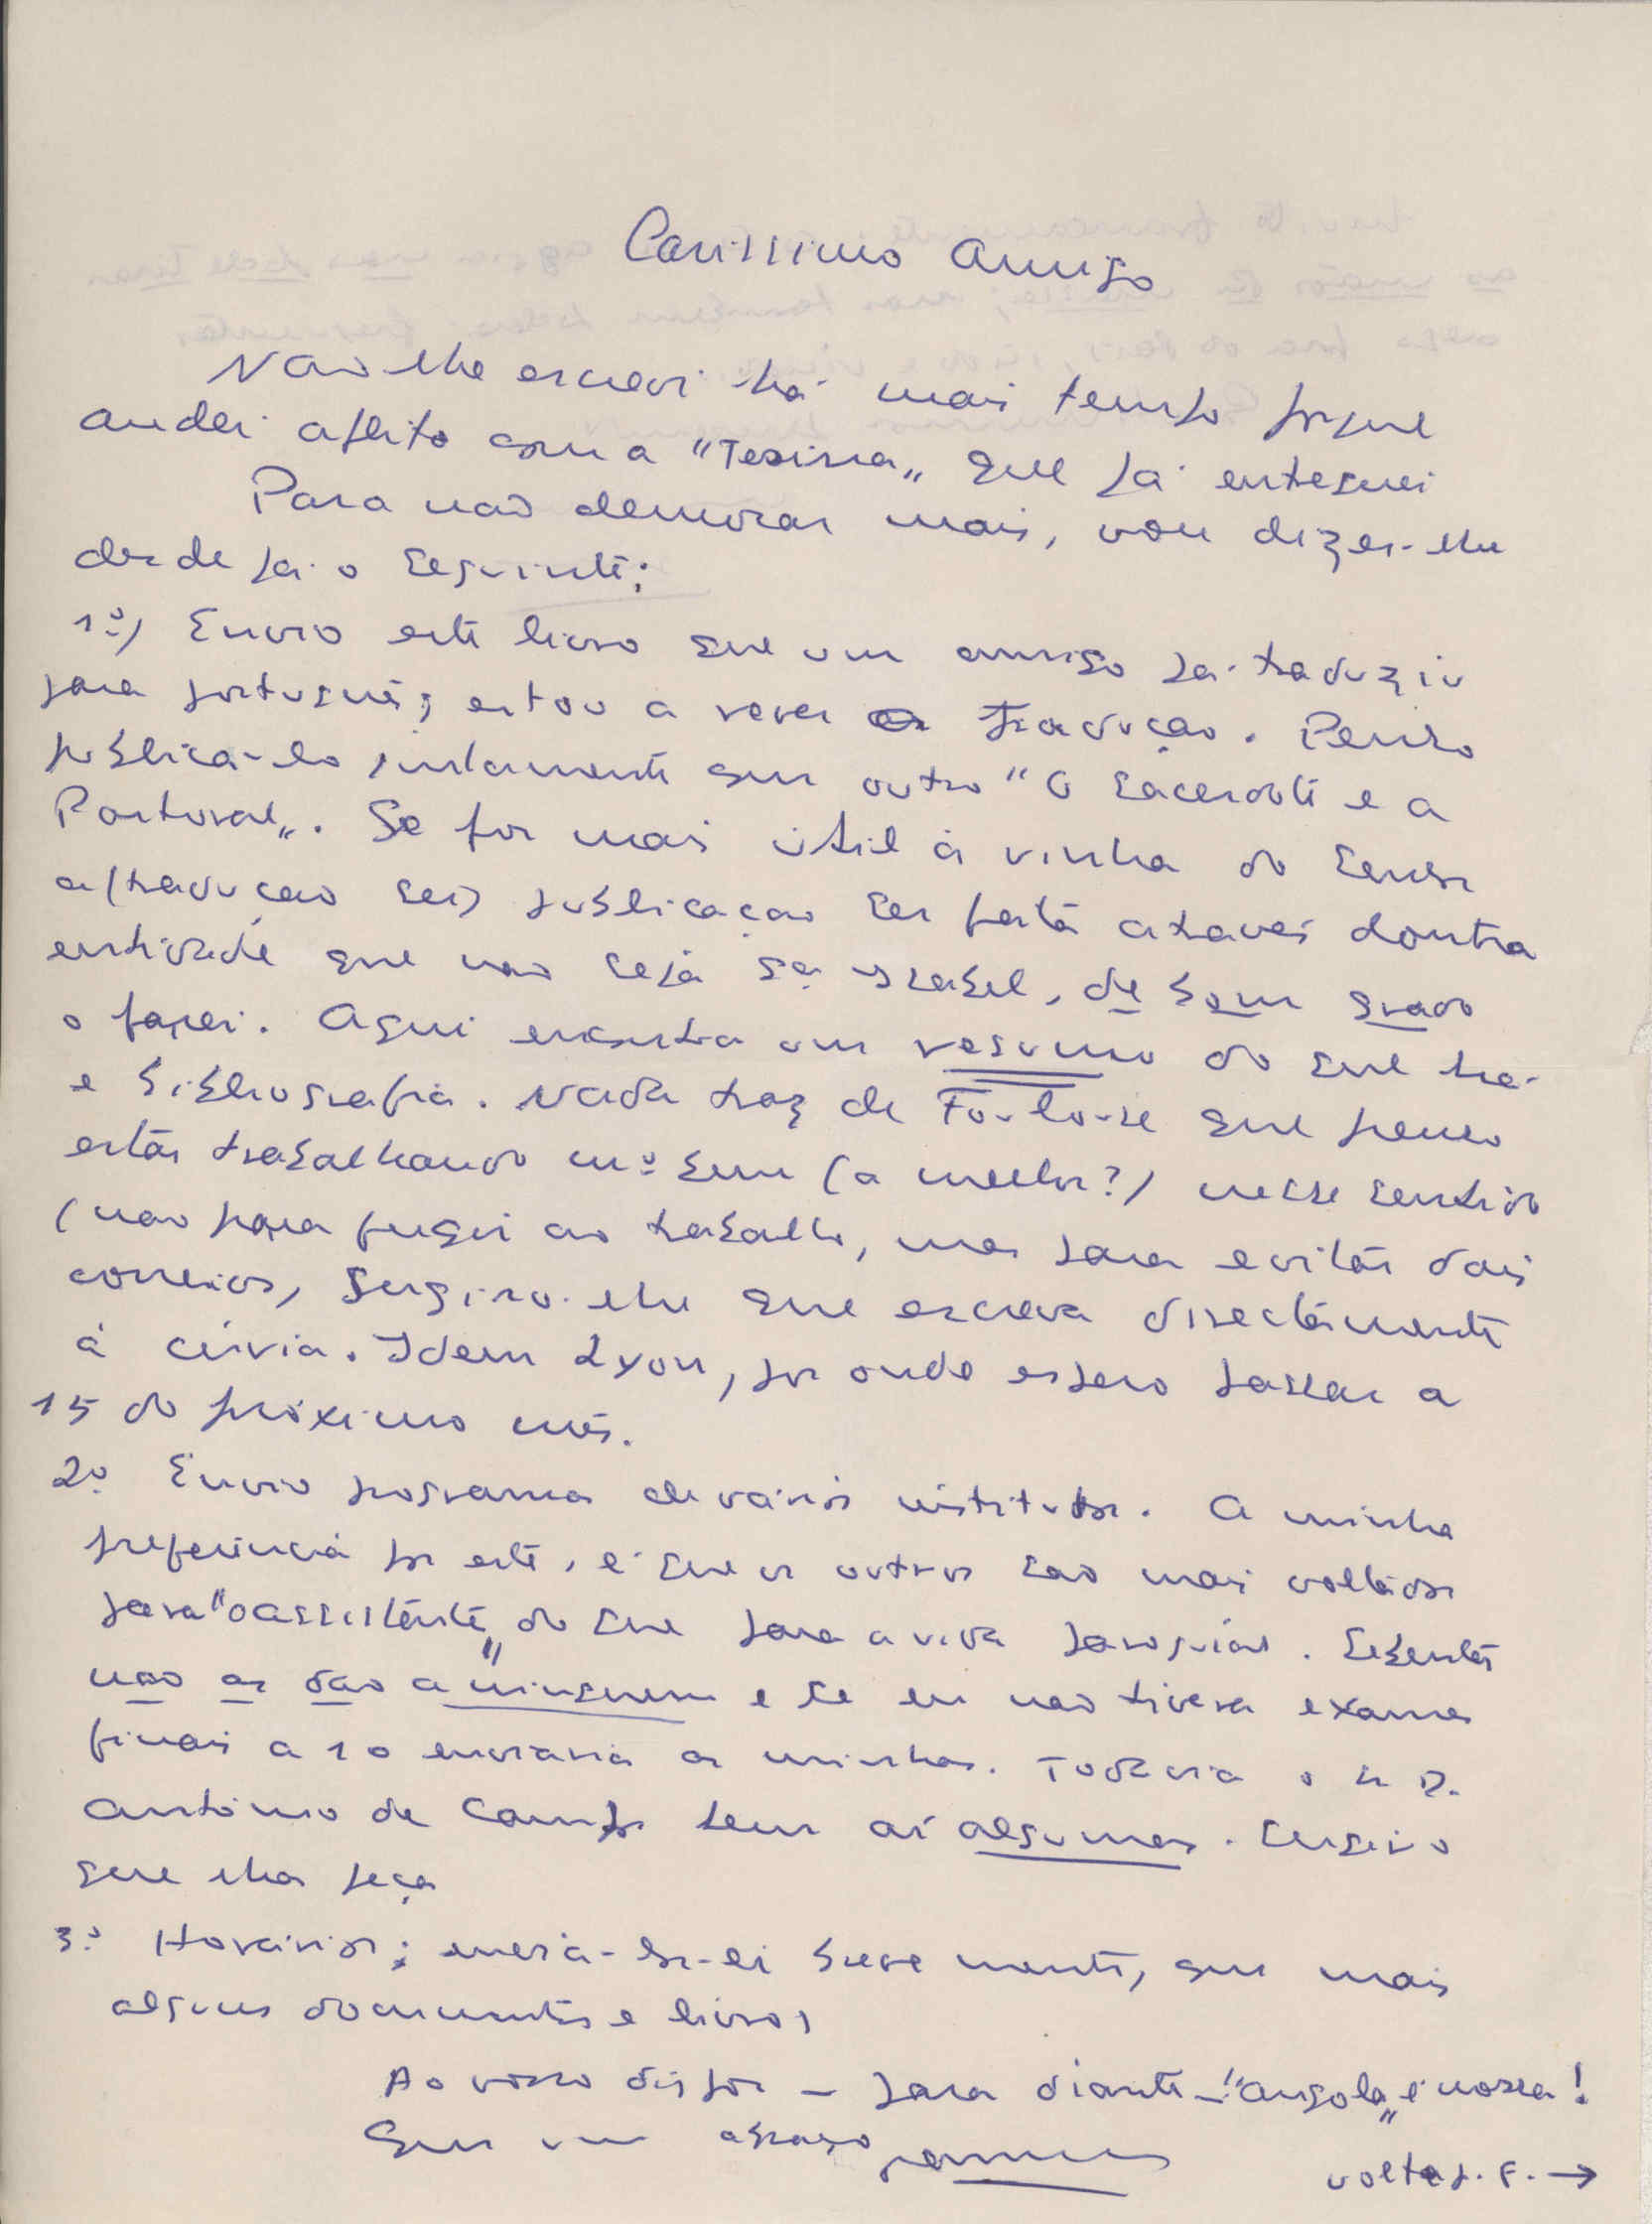 Caríssimo Amigo
Não lhe escrevi há mais tempo porque
andei aflito com a "Tesina" que já entreguei
Para não demorar mais, vou dizer-lhe
desde já o seguinte:
1º) Envio este livro que um amigo já traduziu
para português; estou a rever a tradução. Penso
publicá-lo juntamente com outro "O Sacerdote e a
Pastoral". Se for mais útil à vinha do Senhor
a (tradução sei) publicação ser feita através doutra
entidade que não seja Sª Isabel, de bom grado
o farei. Aqui encontra um resumo do que há
e bibliografia. Nada traz de Toulouse que penso
estar trabalhando mº bem (a melhor?) nesse sentido
(não para fugir ao trabalho, mas para evitar dois
correios, sugiro-lhe que escreva directamente
à Idem Lyon, por onde espero passar a
15 do próximo mês.
2º Envio programas de vários institutos. A minha
preferência por este, é que os outros são mais voltados
para "o assistente" do que para a vida paroquial. Sebentas
não as dão a ninguém e se eu não tivera exames
finais a 10 enviaria as minhas. Todavia o Sr D.
António de Campos tem aí algumas. Sugiro
que lhas peça
3º Horários: enviá-los-ei brevemente, com mais
alguns documentos e livros
Ao vosso dispor - para diante - "Angola" é nossa!
Com um abraço
volte p. f. →